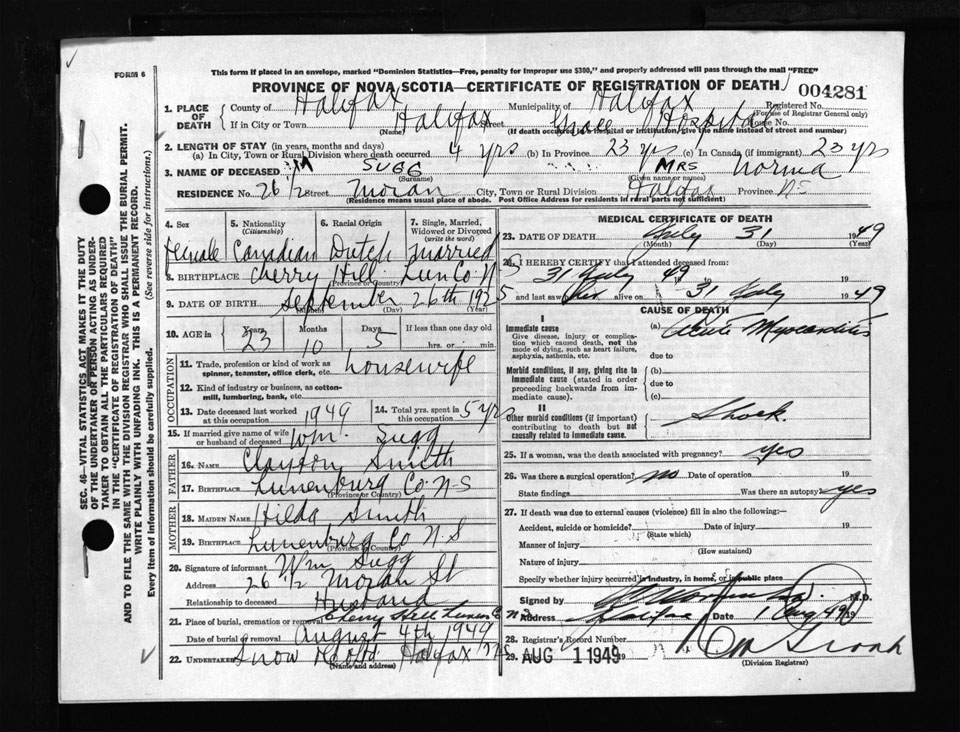 FORM 6
This form if placed in an envelope, marked "Dominion Statistics—Free, penalty for improper use $300," and properly addressed will pass through the mail "FREE"
PROVINCE OF NOVA SCOTIA—CERTIFICATE OF REGISTRATION OF DEATH
004281
SEC. 46—VITAL STATISTICS ACT MAKES IT THE DUTY
OF THE UNDERTAKER OR PERSON ACTING AS UNDER-
TAKER TO OBTAIN ALL THE PARTICULARS REQUIRED
IN THE "CERTIFICATE OF REGISTRATION OF DEATH"
AND TO FILE THE SAME WITH THE DIVISION REGISTRAR WHO SHALL ISSUE THE BURIAL PERMIT.
WRITE PLAINLY WITH UNFADING INK. THIS IS A PERMANENT RECORD.
Every item of information should be carefully supplied. (See reverse side for instructions.)
1. PLACE OF DEATH County of Halifax Municipality of Halifax Registered No.
(For use of Registrar General only)
If in City or Town Halifax Street Grace Hospital House No.
(Name) (If death occurred in a hospital or institution, give the name instead of street and number)
2. LENGTH OF STAY (in years, months and days)
(a) In City, Town or Rural Division where death occurred 4 yrs (b) In Province 23 yrs (c) In Canada (if immigrant) 23 yrs
3. NAME OF DECEASED SUGG MRS Norma
(Surname) (Given name or names)
RESIDENCE No. 26 1/2 Street Moran City, Town or Rural Division Halifax Province NS
(Residence means usual place of abode. Post Office Address for residents in rural parts not sufficient)
4. Sex 5. Nationality (Citizenship) 6. Racial Origin 7. Single, Married, Widowed or Divorced (write the word)
Female Canadian Dutch Married
8. BIRTHPLACE Cherry Hill Lun Co N S
9. DATE OF BIRTH September 26th 1925
(Month) (Day) (Year)
10. AGE in Years Months Days If less than one day old
23 10 5 hrs. or min.
OCCUPATION
11. Trade, profession or kind of work as spinner, teamster, office clerk, etc. housewife
12. Kind of industry or business, as cotton-mill, lumbering, bank, etc.
13. Date deceased last worked at this occupation 1949 14. Total yrs. spent in this occupation 5 yrs
15. If married give name of wife or husband of deceased Wm. Sugg
FATHER
16. NAME Clayton Smith
17. BIRTHPLACE Lunenburg Co. N-S
(Province or Country)
MOTHER
18. MAIDEN NAME Hilda Smith
19. BIRTHPLACE Lunenburg Co N.S
(Province or Country)
20. Signature of informant Wm Sugg
Address 26 1/2 Moran St
Relationship to deceased Husband
21. Place of burial, cremation or removal Cherry Hill Lunen C
Date of burial or removal August 4th 1949
22. UNDERTAKER Snow Halifax NS
(Name and address)
MEDICAL CERTIFICATE OF DEATH
23. DATE OF DEATH July 31 1949
(Month) (Day) (Year)
24. I HEREBY CERTIFY that I attended deceased from:
31 July 49 to 19
and last saw her alive on 31 July 1949
CAUSE OF DEATH
I
Immediate cause
Give disease, injury or complication which caused death, not the mode of dying, such as heart failure, asphyxia, asthenia, etc.
(a) Acute Myocarditis
due to
Morbid conditions, if any, giving rise to immediate cause (stated in order proceeding backwards from immediate cause).
(b)
due to
(c)
II
Other morbid conditions (if important) contributing to death but not causally related to immediate cause.
Shock.
25. If a woman, was the death associated with pregnancy? yes
26. Was there a surgical operation? no Date of operation 19
State findings Was there an autopsy? yes
27. If death was due to external causes (violence) fill in also the following:—
Accident, suicide or homicide? Date of injury 19
(State which)
Manner of injury
(How sustained)
Nature of injury
Specify whether injury occurred in industry, in home, or in public place
Signed by M.D.
Address Halifax NS Date 1 Aug 49 19
28. Registrar's Record Number
29. AUG 1 1949 19
(Division Registrar)